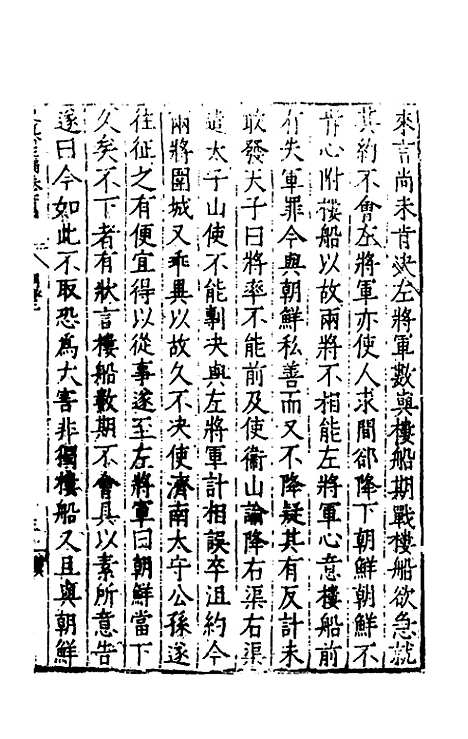 來言尚未肯決左將軍數與樓船期戰樓船欲急就
其約不會左將軍亦使人求間郤降下朝鮮朝鮮不
肯心附樓船以故兩將不相能左將軍心意樓船前
有失軍罪今與朝鮮私善而又不降疑其有反計未
敢發天子曰將率不能前及使衞山諭降右渠右渠
遣太子山使不能剸決與左將軍計相誤卒沮約今
兩將圍城又乖異以故久不決使濟南太守公孫遂
往征之有便宜得以從事遂至左將軍曰朝鮮當下
久矣不下者有狀言樓船數期不會具以素所意告
遂曰今如此不取恐為大害非獨樓船又且與朝鮮